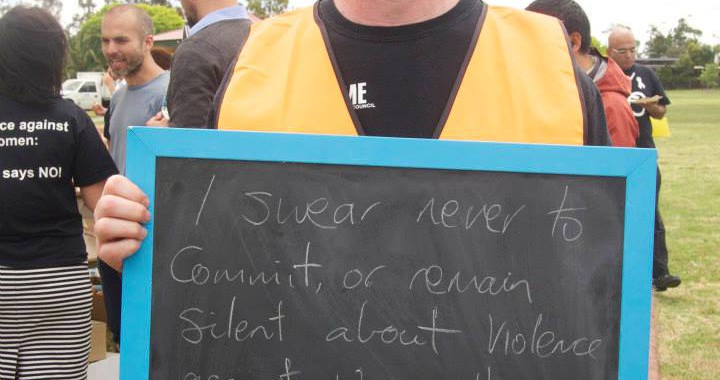 ce against
omen:
says NO!
ME
COUNCIL
I swear never to
Commit, or remain
Silent about Violence